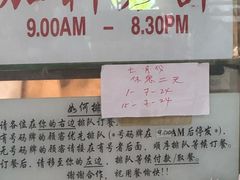 9.00AM - 8.30PM
七月份
休息二天
1-7-24
15-7-24
如何排
请各位在你的右边排队订餐。
有号码牌的顾客优先排队(号码牌在9.00AM后停发)，
无号码牌的顾客请接在有号者后面，顺序排队等候订餐
订餐后，请移至你的左边，排队等候付款/取餐
谢谢合作，祝用餐愉快！